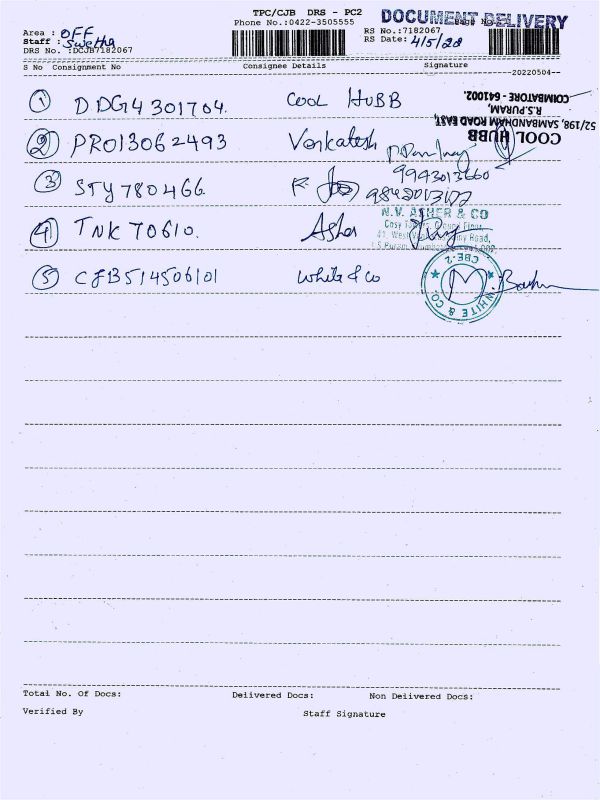 TPC/CJB DRS - PC2
DOCUMENT DELIVERY
Phone No.:0422-3505555
Area : OFF
RS No.:7182067
Staff : Swetha
RS Date: 4/5/22
DRS No. :DCJB7182067
S No Consignment No Consignee Details Signature
20220504
COOL HUBB
52/198, SAMBANDHAM ROAD EAST,
R.S.PURAM,
COIMBATORE - 641002.
1 DDG4301704. COOL HUBB
2 PRO13062493 Venkatesh
9943013660
3 STY780466
4 TNK 70610. Asher
N.V. ASHER & CO
5 CJB514506101 White & Co
WHITE & CO. CBE-2
Total No. Of Docs: Delivered Docs: Non Delivered Docs:
Verified By Staff Signature